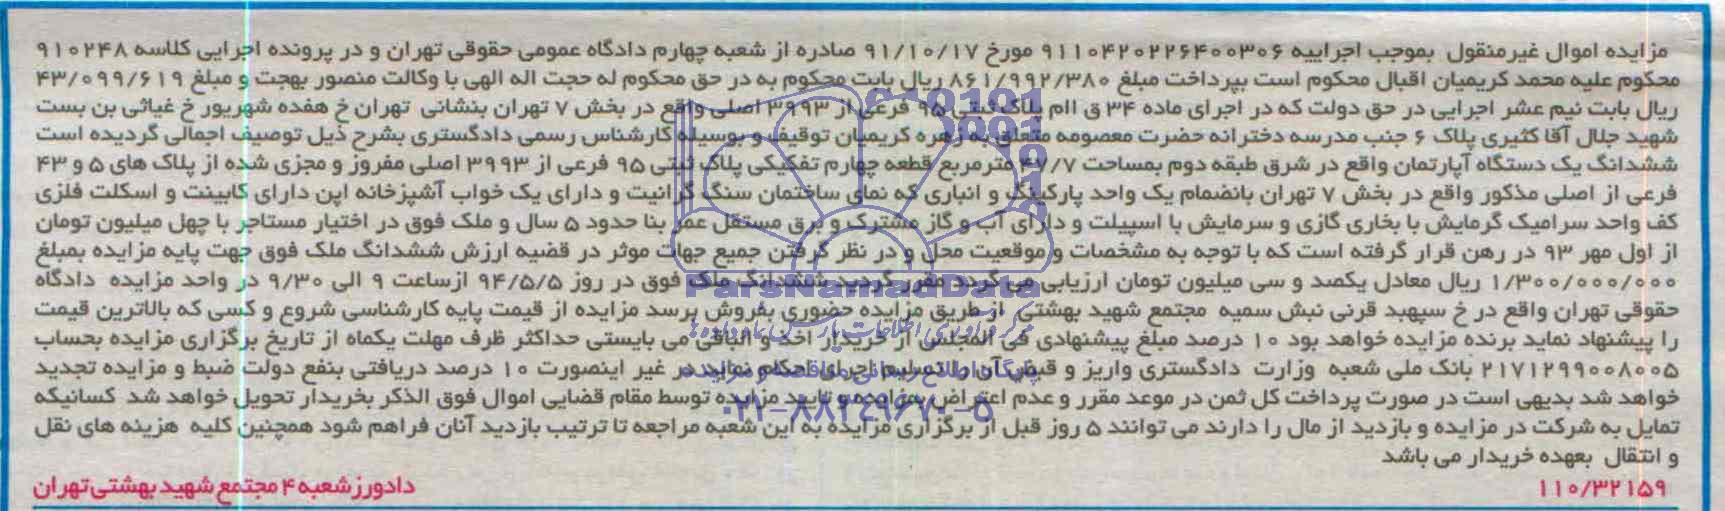 مزایده اموال غیرمنقول بموجب اجراییه ۹۱۱۰۴۲۰۲۲۶۴۰۰۳۰۶ مورخ ۹۱/۱۰/۱۷ صادره از شعبه چهارم دادگاه عمومی حقوقی تهران و در پرونده اجرایی کلاسه ۹۱۰۲۴۸
محکوم علیه محمد کریمیان اقبال محکوم است بپرداخت مبلغ ۸۶۱/۹۹۲/۳۸۰ ریال بابت محکوم به در حق محکوم له حجت اله الهی با وکالت منصور بهجت و مبلغ ۴۳/۰۹۹/۶۱۹
ریال بابت نیم عشر اجرایی در حق دولت که در اجرای ماده ۳۴ ق اام پلاک ثبتی ۹۵ فرعی از ۳۹۹۳ اصلی واقع در بخش ۷ تهران بنشانی تهران خ هفده شهریور خ غیاثی بن بست
شهید جلال آقا کثیری پلاک ۶ جنب مدرسه دخترانه حضرت معصومه متعلق به زهره کریمیان توقیف و بوسیله کارشناس رسمی دادگستری بشرح ذیل توصیف اجمالی گردیده است
ششدانگ یک دستگاه آپارتمان واقع در شرق طبقه دوم بمساحت ۴۷/۷ مترمربع قطعه چهارم تفکیکی پلاک ثبتی ۹۵ فرعی از ۳۹۹۳ اصلی مفروز و مجزی شده از پلاک های ۵ و ۴۳
فرعی از اصلی مذکور واقع در بخش ۷ تهران بانضمام یک واحد پارکینگ و انباری که نمای ساختمان سنگ گرانیت و دارای یک خواب آشپزخانه اپن دارای کابینت و اسکلت فلزی
کف واحد سرامیک گرمایش با بخاری گازی و سرمایش با اسپیلت و دارای آب و گاز مشترک و برق مستقل عمر بنا حدود ۵ سال و ملک فوق در اختیار مستاجر با چهل میلیون تومان
از اول مهر ۹۳ در رهن قرار گرفته است که با توجه به مشخصات و موقعیت محل و در نظر گرفتن جمیع جهات موثر در قضیه ارزش ششدانگ ملک فوق جهت پایه مزایده بمبلغ
۱/۳۰۰/۰۰۰/۰۰۰ ریال معادل یکصد و سی میلیون تومان ارزیابی می گردد مقرر گردید ششدانگ ملک فوق در روز ۹۴/۵/۵ ازساعت ۹ الی ۹/۳۰ در واحد مزایده دادگاه
حقوقی تهران واقع در خ سپهبد قرنی نبش سمیه مجتمع شهید بهشتی از طریق مزایده حضوری بفروش برسد مزایده از قیمت پایه کارشناسی شروع و کسی که بالاترین قیمت
را پیشنهاد نماید برنده مزایده خواهد بود ۱۰ درصد مبلغ پیشنهادی فی المجلس از خریدار اخذ و الباقی می بایستی حداکثر ظرف مهلت یکماه از تاریخ برگزاری مزایده بحساب
۲۱۷۱۲۹۹۰۰۸۰۰۵ بانک ملی شعبه وزارت دادگستری واریز و قبض آن را تسلیم اجرای احکام نماید در غیر اینصورت ۱۰ درصد دریافتی بنفع دولت ضبط و مزایده تجدید
خواهد شد بدیهی است در صورت پرداخت کل ثمن در موعد مقرر و عدم اعتراض بمزایده و تایید مزایده توسط مقام قضایی اموال فوق الذکر بخریدار تحویل خواهد شد کسانیکه
تمایل به شرکت در مزایده و بازدید از مال را دارند می توانند ۵ روز قبل از برگزاری مزایده به این شعبه مراجعه تا ترتیب بازدید آنان فراهم شود همچنین کلیه هزینه های نقل
و انتقال بعهده خریدار می باشد
۱۱۰/۳۲۱۵۹
دادورز شعبه ۴ مجتمع شهید بهشتی تهران
ParsNamadData
مرکز فرآوری اطلاعات پارس نماد داده ها
پایگاه اطلاع رسانی مناقصه و مزایده
۰۲۱-۸۸۳۴۹۶۷۰-۵